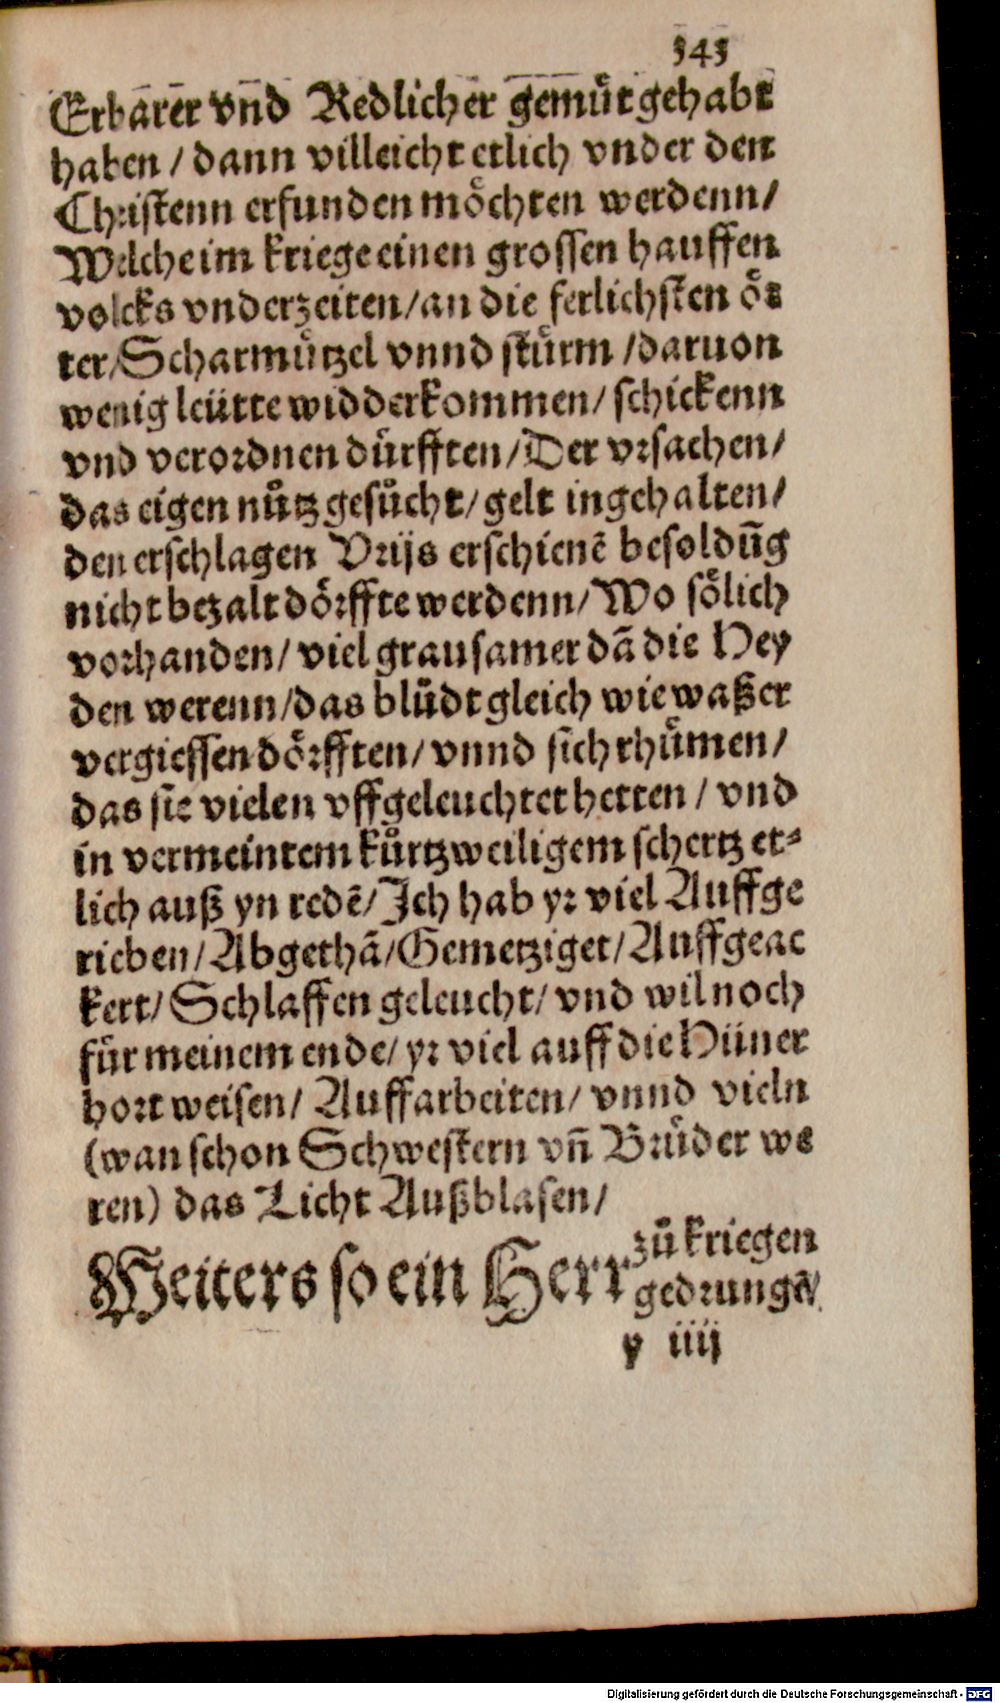 343
Erbarer vnd Redlicher gemuͤt gehabt
haben / dann villeicht etlich vnder den
Christenn erfunden moͤchten werdenn /
Welche im kriege einen grossen hauffen
volcks vnderzeiten / an die ferlichsten oͤr
ter / Scharmuͤtzel vnnd stuͤrm / daruon
wenig leütte widderkommen / schickenn
vnd verordnen duͤrfften / Der vrsachen /
das eigen nuͦtz gesuͦcht / gelt ingehalten /
den erschlagen Vrijs erschienē besoldūg
nicht betzalt doͤrffte werdenn / Wo soͤlich
vorhanden / viel grausamer dā die Hey
den werenn / das bluͦdt gleich wie waßer
vergiessen doͤrfften / vnnd sich rhuͤmen /
das sie vielen vffgeleuchtet hetten / vnd
in vermeintem kuͦrtzweiligem schertz et⸗
lich auß yn redē / Ich hab yr viel Auffge
rieben / Abgethā / Gemetziget / Auffgeac
kert / Schlaffen geleucht / vnd wil noch
für meinem ende / yr viel auff die Hüner
hort weisen / Auffarbeiten / vnnd vieln
(wan schon Schwestern vn̄ Bruͤder we
ren) das Licht Außblasen /
Weiters so ein Herr zuͦ kriegen
gedrungē /
y iiij
Digitalisierung gefördert durch die Deutsche Forschungsgemeinschaft - DFG